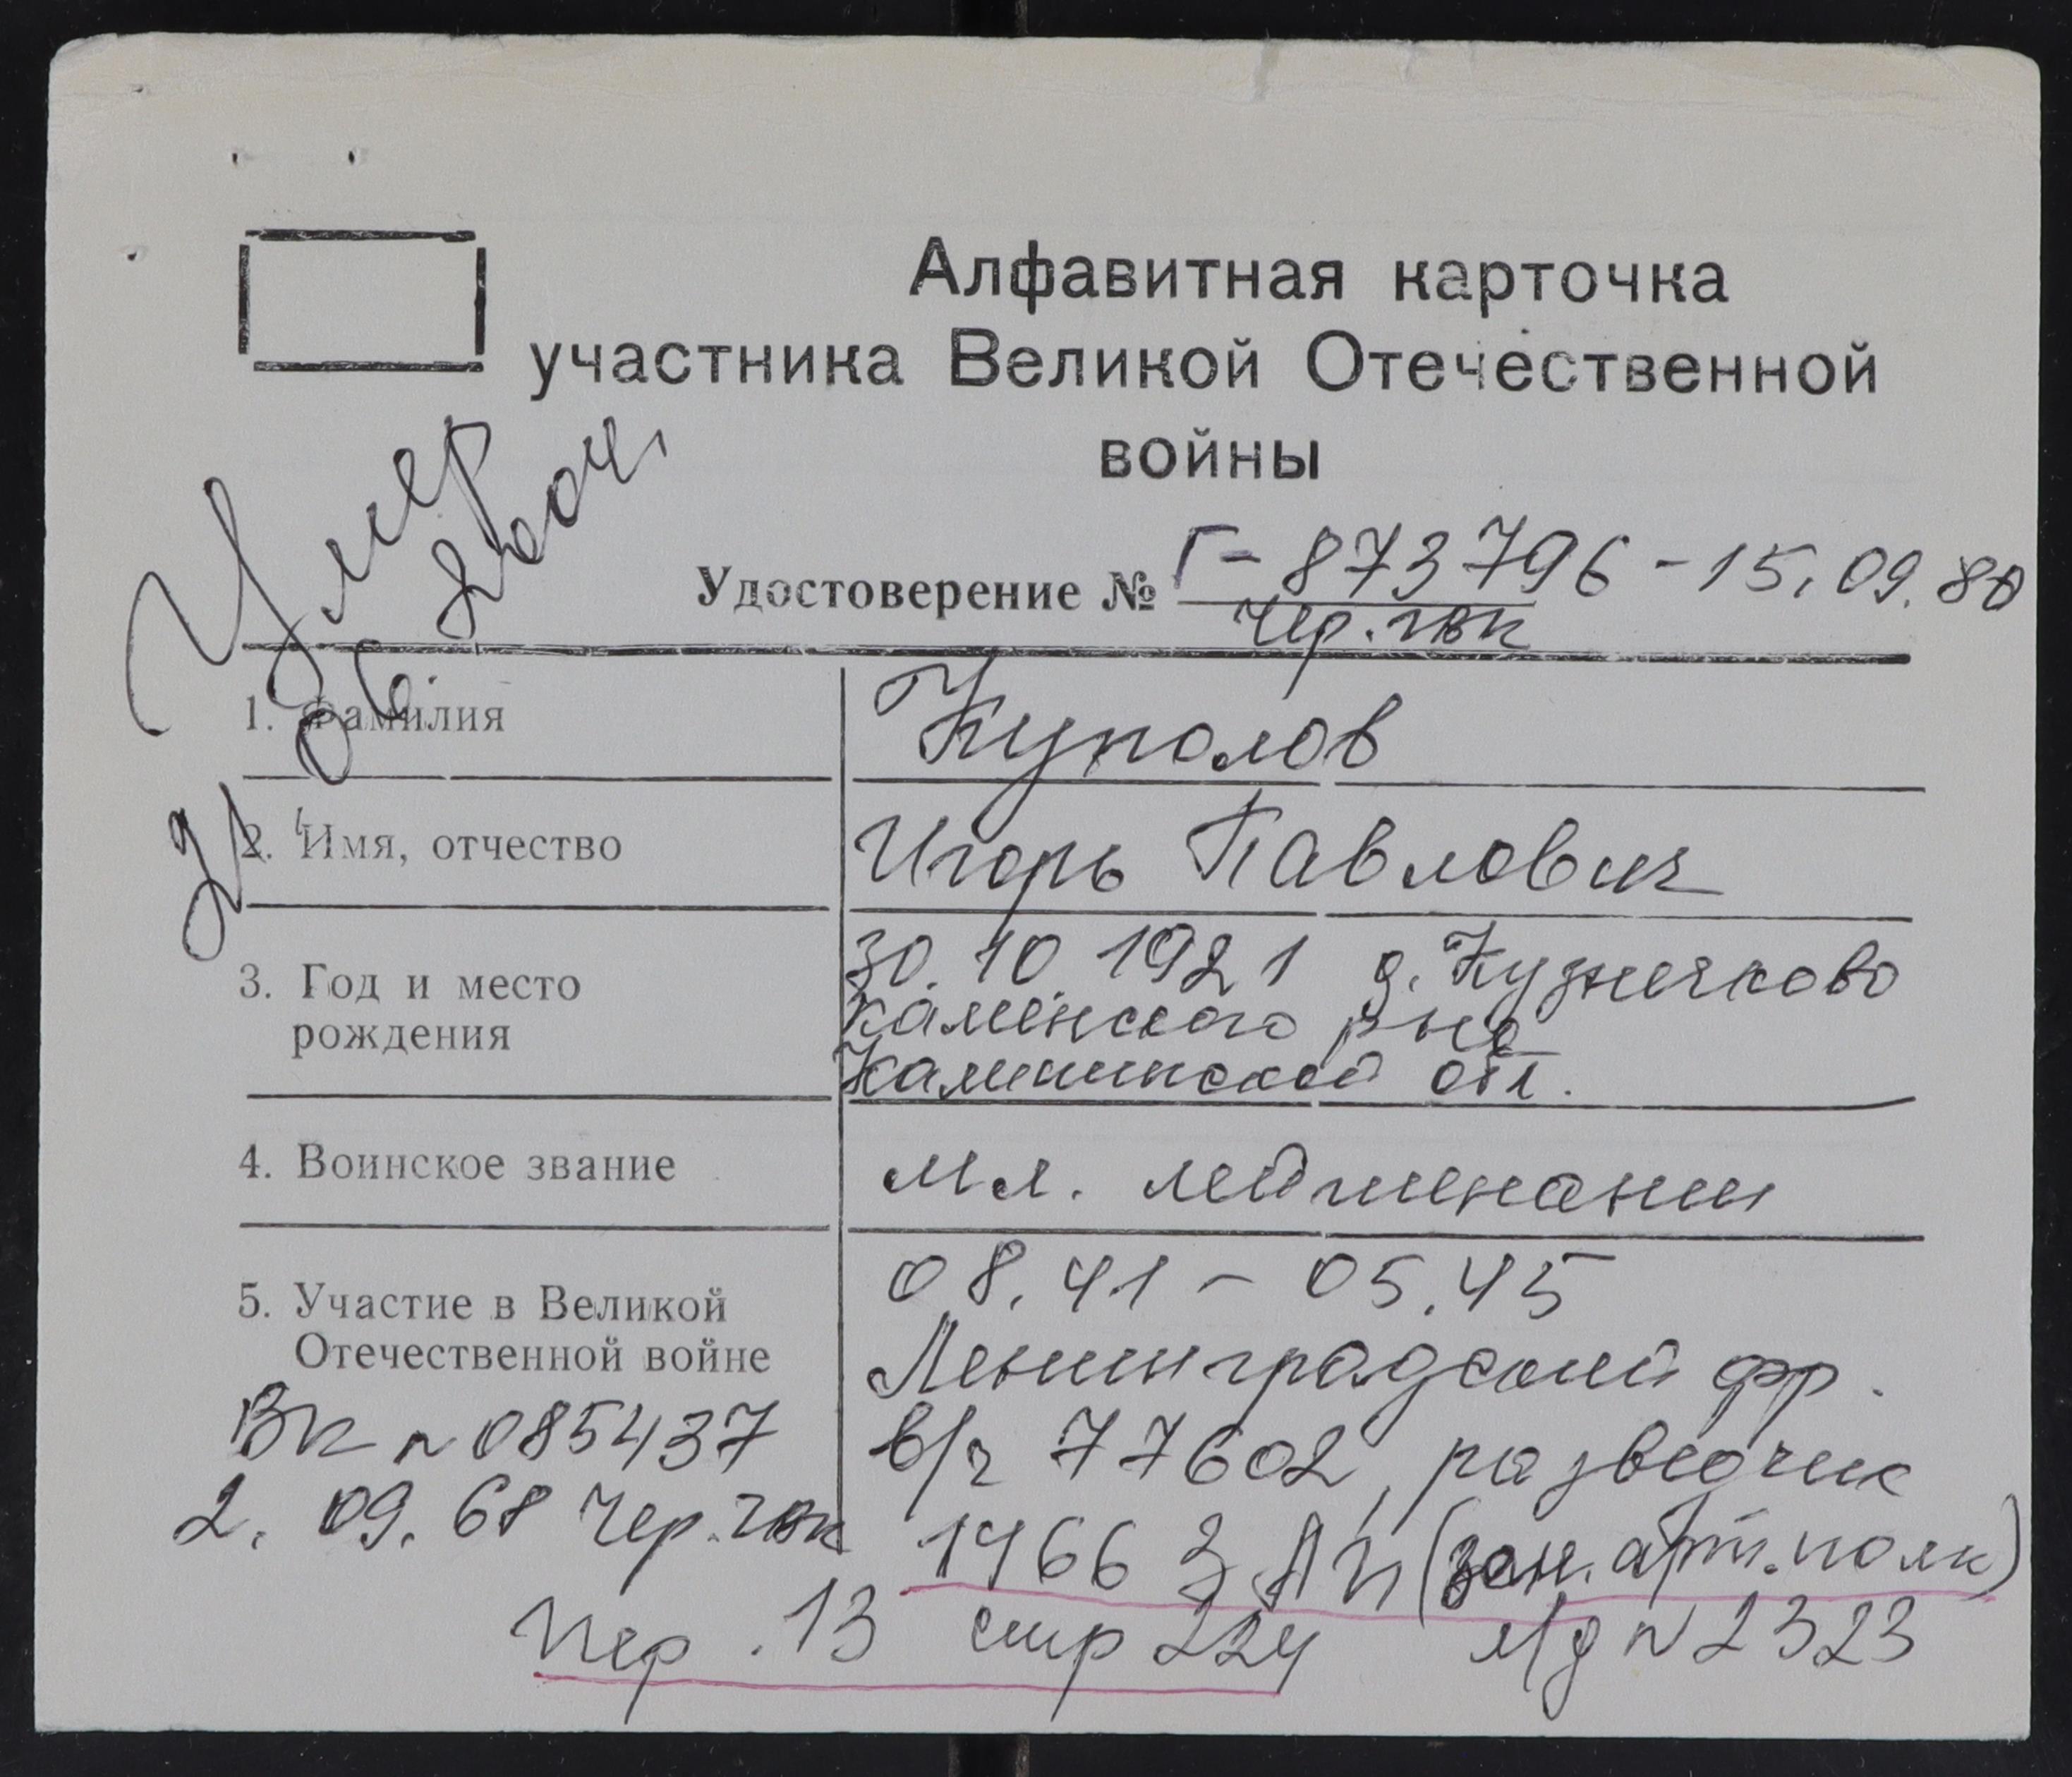 Алфавитная карточка
участника Великой Отечественной
войны
Умер
21.06.2004.
Удостоверение № Г-873796-15.09.80
Чер. гвк
1. Фамилия
Куполов
2. Имя, отчество
Игорь Павлович
3. Год и место
рождения
30.10.1921 д. Кузнечково
Каменского р-на
Калининской обл.
4. Воинское звание
мл. лейтенант
5. Участие в Великой
Отечественной войне
08.41 - 05.45
Ленинградский фр.
в/ч 77602, разведчик
1466 ЗАП (зен. арт. полк)
ВК № 085437
2.09.68 Чер. гвк
Пер. 13 стр 224
л/д № 2323